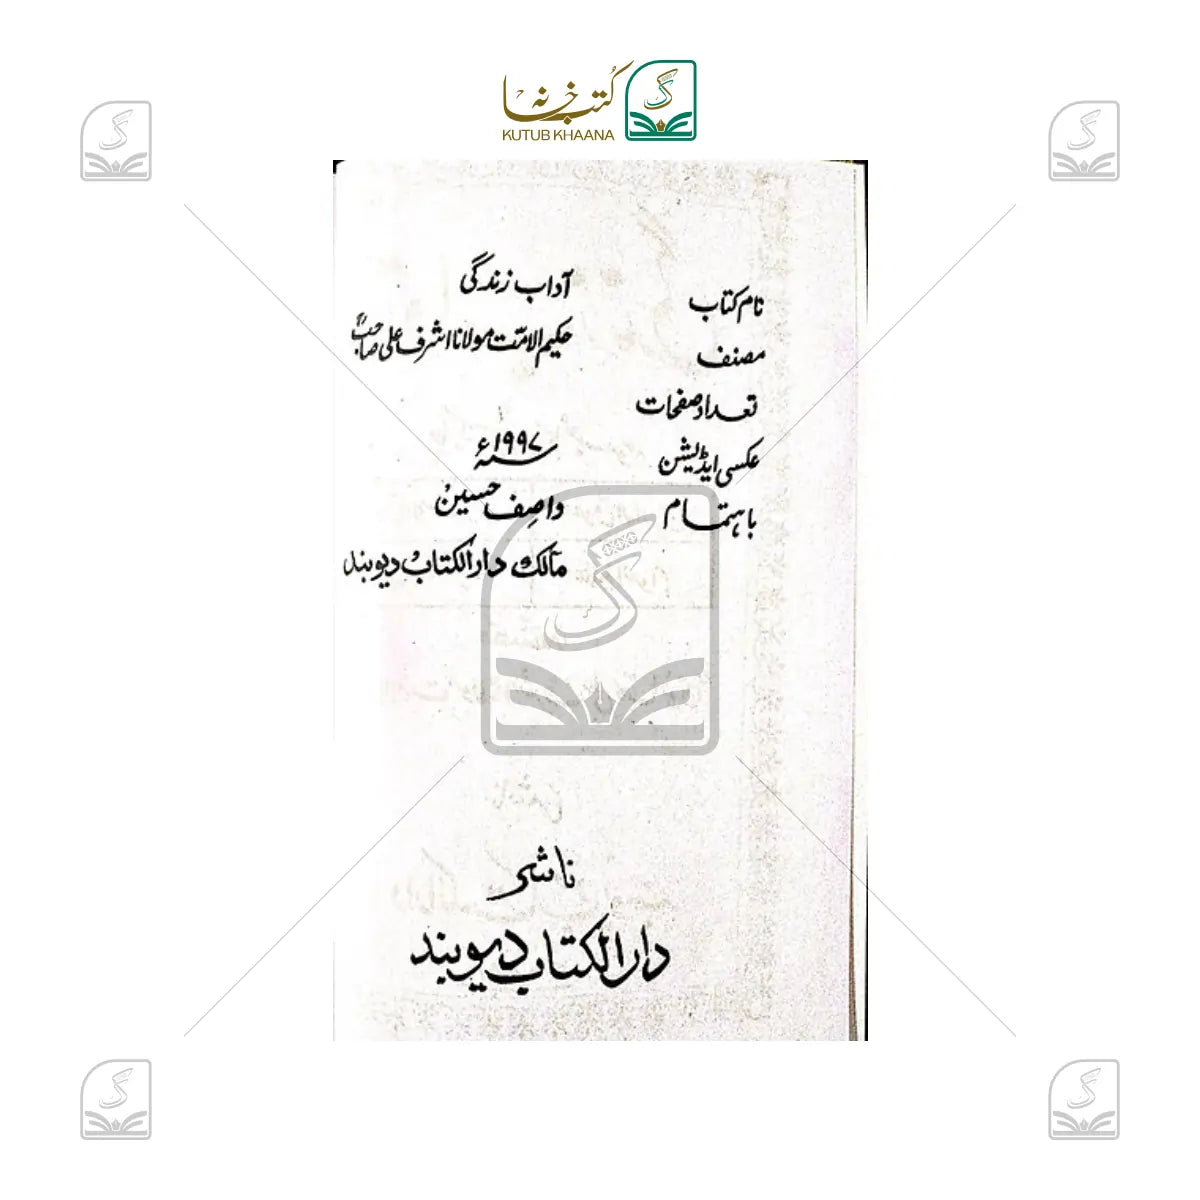 کتب خانہ
KUTUB KHAANA
نام کتاب آداب زندگی
مصنف حکیم الامّت مولانا اشرف علی صاحبؒ
تعداد صفحات
عکسی ایڈیشن ۱۹۹۷ء
باہتمام واصف حسین
مالک دارالکتاب دیوبند
ناشر
دارالکتاب دیوبند